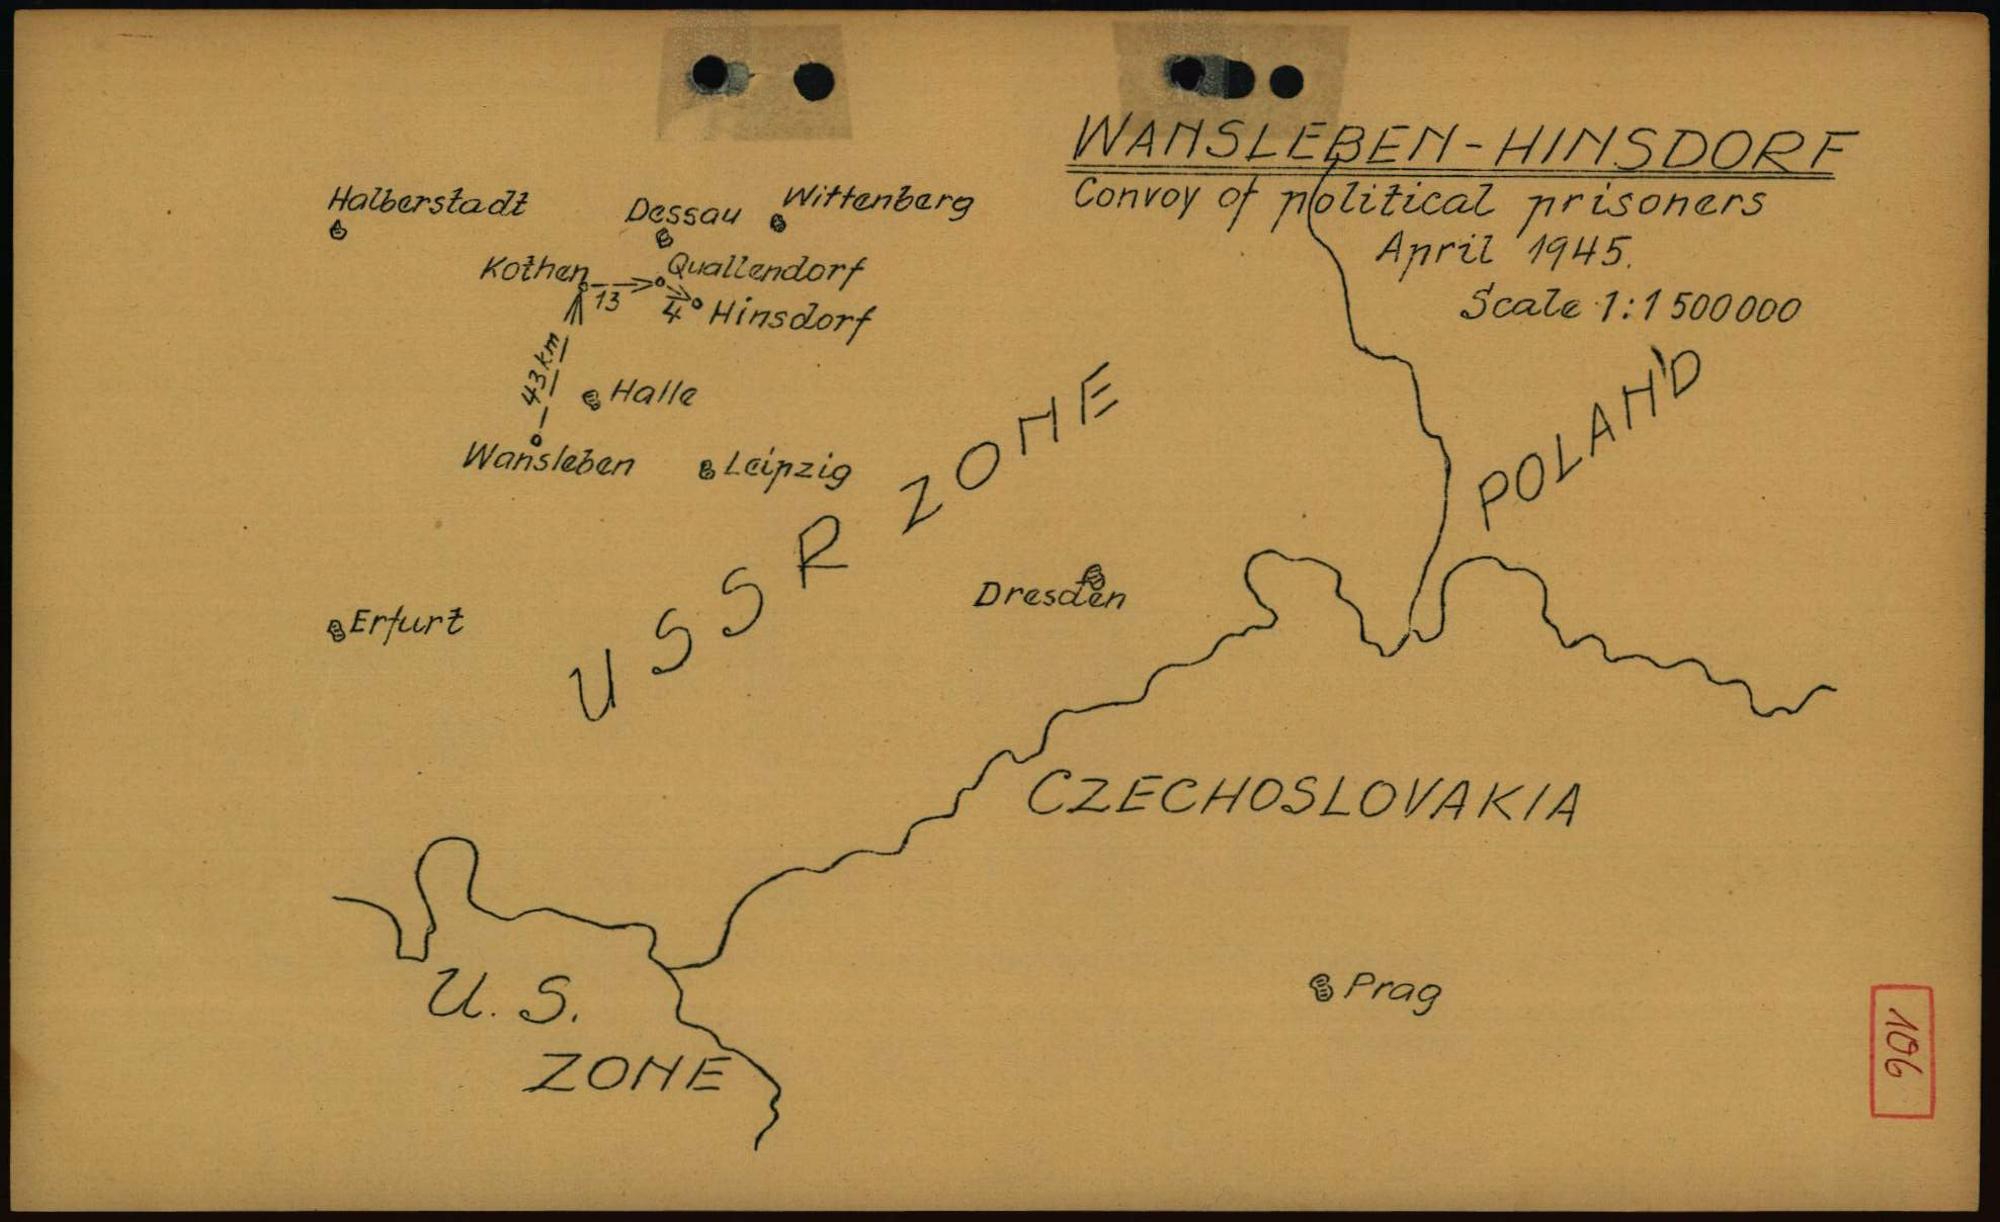 WANSLEBEN-HINSDORF
Convoy of political prisoners
April 1945.
Scale 1:1 500 000
Halberstadt
Dessau
Wittenberg
Kothen
13
Quallendorf
4
Hinsdorf
43 km
Halle
Wansleben
Leipzig
USSR ZONE
POLAND
Dresden
Erfurt
CZECHOSLOVAKIA
U. S.
ZONE
Prag
106